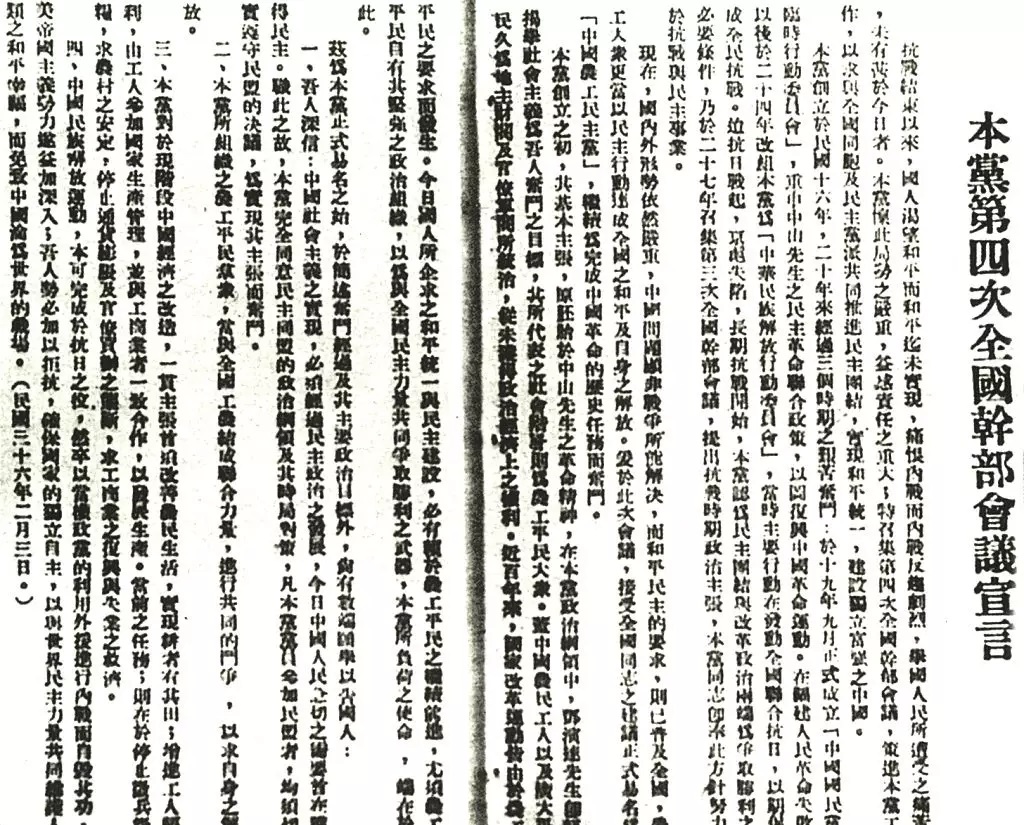 本黨第四次全國幹部會議宣言
抗戰結束以來，國人渴望和平而和平迄未實現，痛恨內戰而內戰反趨劇烈，舉國人民所遭受之痛苦
，未有甚於今日者。本黨懍此局勢之嚴重，益感責任之重大；特召集第四次全國幹部會議，策進本黨工
作，以求與全國同胞及民主黨派共同推進民主團結，實現和平統一，建設獨立富強之中國。
本黨創立於民國十六年，二十年來經過三個時期之艱苦奮鬥：於十九年九月正式成立「中國國民黨
臨時行動委員會」，重申中山先生之民主革命聯合政策，以圖復興中國革命運動。在福建人民革命失敗
以後於二十四年改組本黨為「中華民族解放行動委員會」，當時主要行動在發動全國聯合抗日，以期促
成全民抗戰。迨抗日戰起，京滬失陷，長期抗戰開始，本黨認為民主團結與改革政治兩端為爭取勝利之
必要條件，乃於二十七年召集第三次全國幹部會議，提出抗戰時期政治主張，本黨同志即本此方針努力
於抗戰與民主事業。
現在，國內外形勢依然嚴重，中國問題非戰爭所能解決，而和平民主的要求，則已普及全國，農
工大眾更當以民主行動達成全國之和平及自身之解放。爰於此次會議，接受全國同志之建議正式易名為
「中國農工民主黨」，繼續為完成中國革命的歷史任務而奮鬥。
本黨創立之初，其基本主張，原胚胎於中山先生之革命精神，在本黨政治綱領中，鄧演達先生即
揭舉社會主義為吾人奮鬥之目標，其所代表之社會階層則為農工平民大眾。蓋中國農民工人以及廣大平
民久為地主財閥及官僚軍閥所統治，從未獲得政治經濟上之權利。近百年來，國家改革運動皆由於農工
平民之要求而發生。今日國人所企求之和平統一與民主建設，必有賴於農工平民之繼續前進，尤須農工
平民自有其堅強之政治組織，以為與全國民主力量共同爭取勝利之武器，本黨所負荷之使命，端在於
此。
茲為本黨正式易名之始，於簡述奮鬥經過及其主要政治目標外，尚有數端願舉以告國人：
一、吾人深信：中國社會主義之實現，必須經過民主政治之發展，今日中國人民急切之需要皆在獲
得民主。職此之故，本黨完全同意民主同盟的政治綱領及其時局對策，凡本黨黨員參加民盟者，均須切
實遵守民盟的決議，為實現其主張而奮鬥。
二、本黨所組織之農工平民羣眾，當與全國工農結成聯合力量，進行共同的鬥爭，以求自身之解
放。
三、本黨對於現階段中國經濟之改造，一貫主張首須改善農民生活，實現耕者有其田；增進工人福
利，由工人參加國家生產管理，並與工商業者一致合作，以發展生產。當前之任務；則在於停止徵兵徵
糧，求農村之安定，停止通貨膨脹及官僚買辦之壟斷，求工商業之復興與失業之救濟。
四、中國民族解放運動，本可完成於抗日之役，然卒以當權政黨的利用外援進行內戰而自毀其功，
美帝國主義勢力遂益加深入；吾人勢必加以拒抗，確保國家的獨立自主，以與世界民主力量共同維護人
類之和平幸福，而免致中國淪為世界的戰場。（民國三十六年二月三日。）